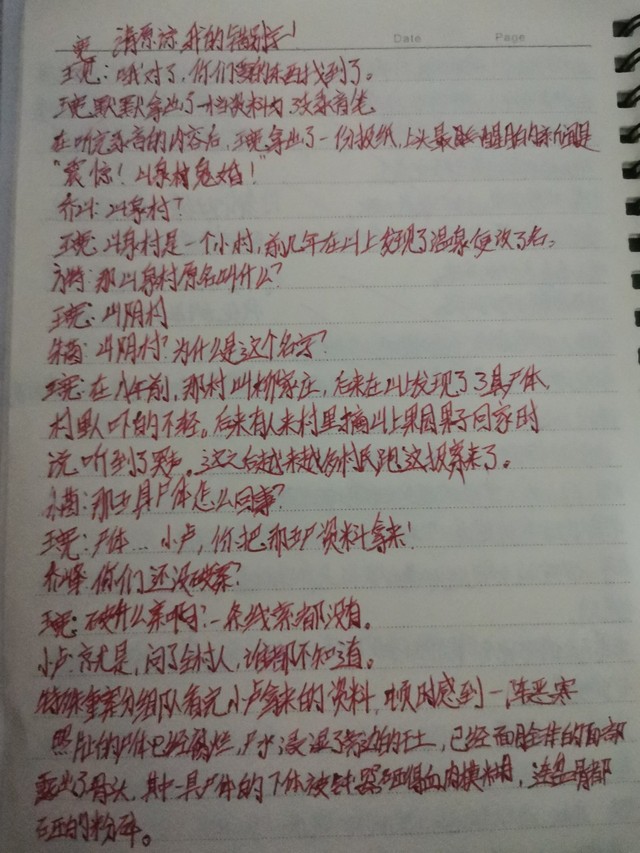 请原谅我的错别字!
Date Page
王冕:哦对了,你们要的东西找到了。
王冕默默拿出了一档资料内,和录音笔
在听完录音的内容后,王冕拿出了一份报纸,上头最醒目的新闻是
"震惊!山泉村鬼婚!"
乔斗:山泉村?
王冕:山泉村是一个小村,前几年在山上发现了温泉便改了名。
方特:那山泉村原名叫什么?
王冕:山阴村
朱茜:山阴村?为什么是这个名字?
王冕:在八年前,那村叫柳家庄,后来在山上发现了3具尸体,
村里人吓的不轻。后来有人来村里摘山上果园果子回家时
说,听到了哭声。这之后越来越多村民跑这报案来了。
朱茜:那五具尸体怎么回事?
王冕:尸体...小卢,你把那五尸资料拿来!
乔峰:你们还没破案?
王冕:破什么案啊?一条线索都没有。
小卢:就是,问了全村人,谁都不知道。
特殊重案分组队看完小卢拿来的资料,顿时感到一阵恶寒
照片的尸体已经腐烂,尸水浸湿了旁边的干土,已经面目全非的面部
露出了骨头,其中一具尸体的下体被钝器砸得血肉模糊,连盆骨都
砸的粉碎。